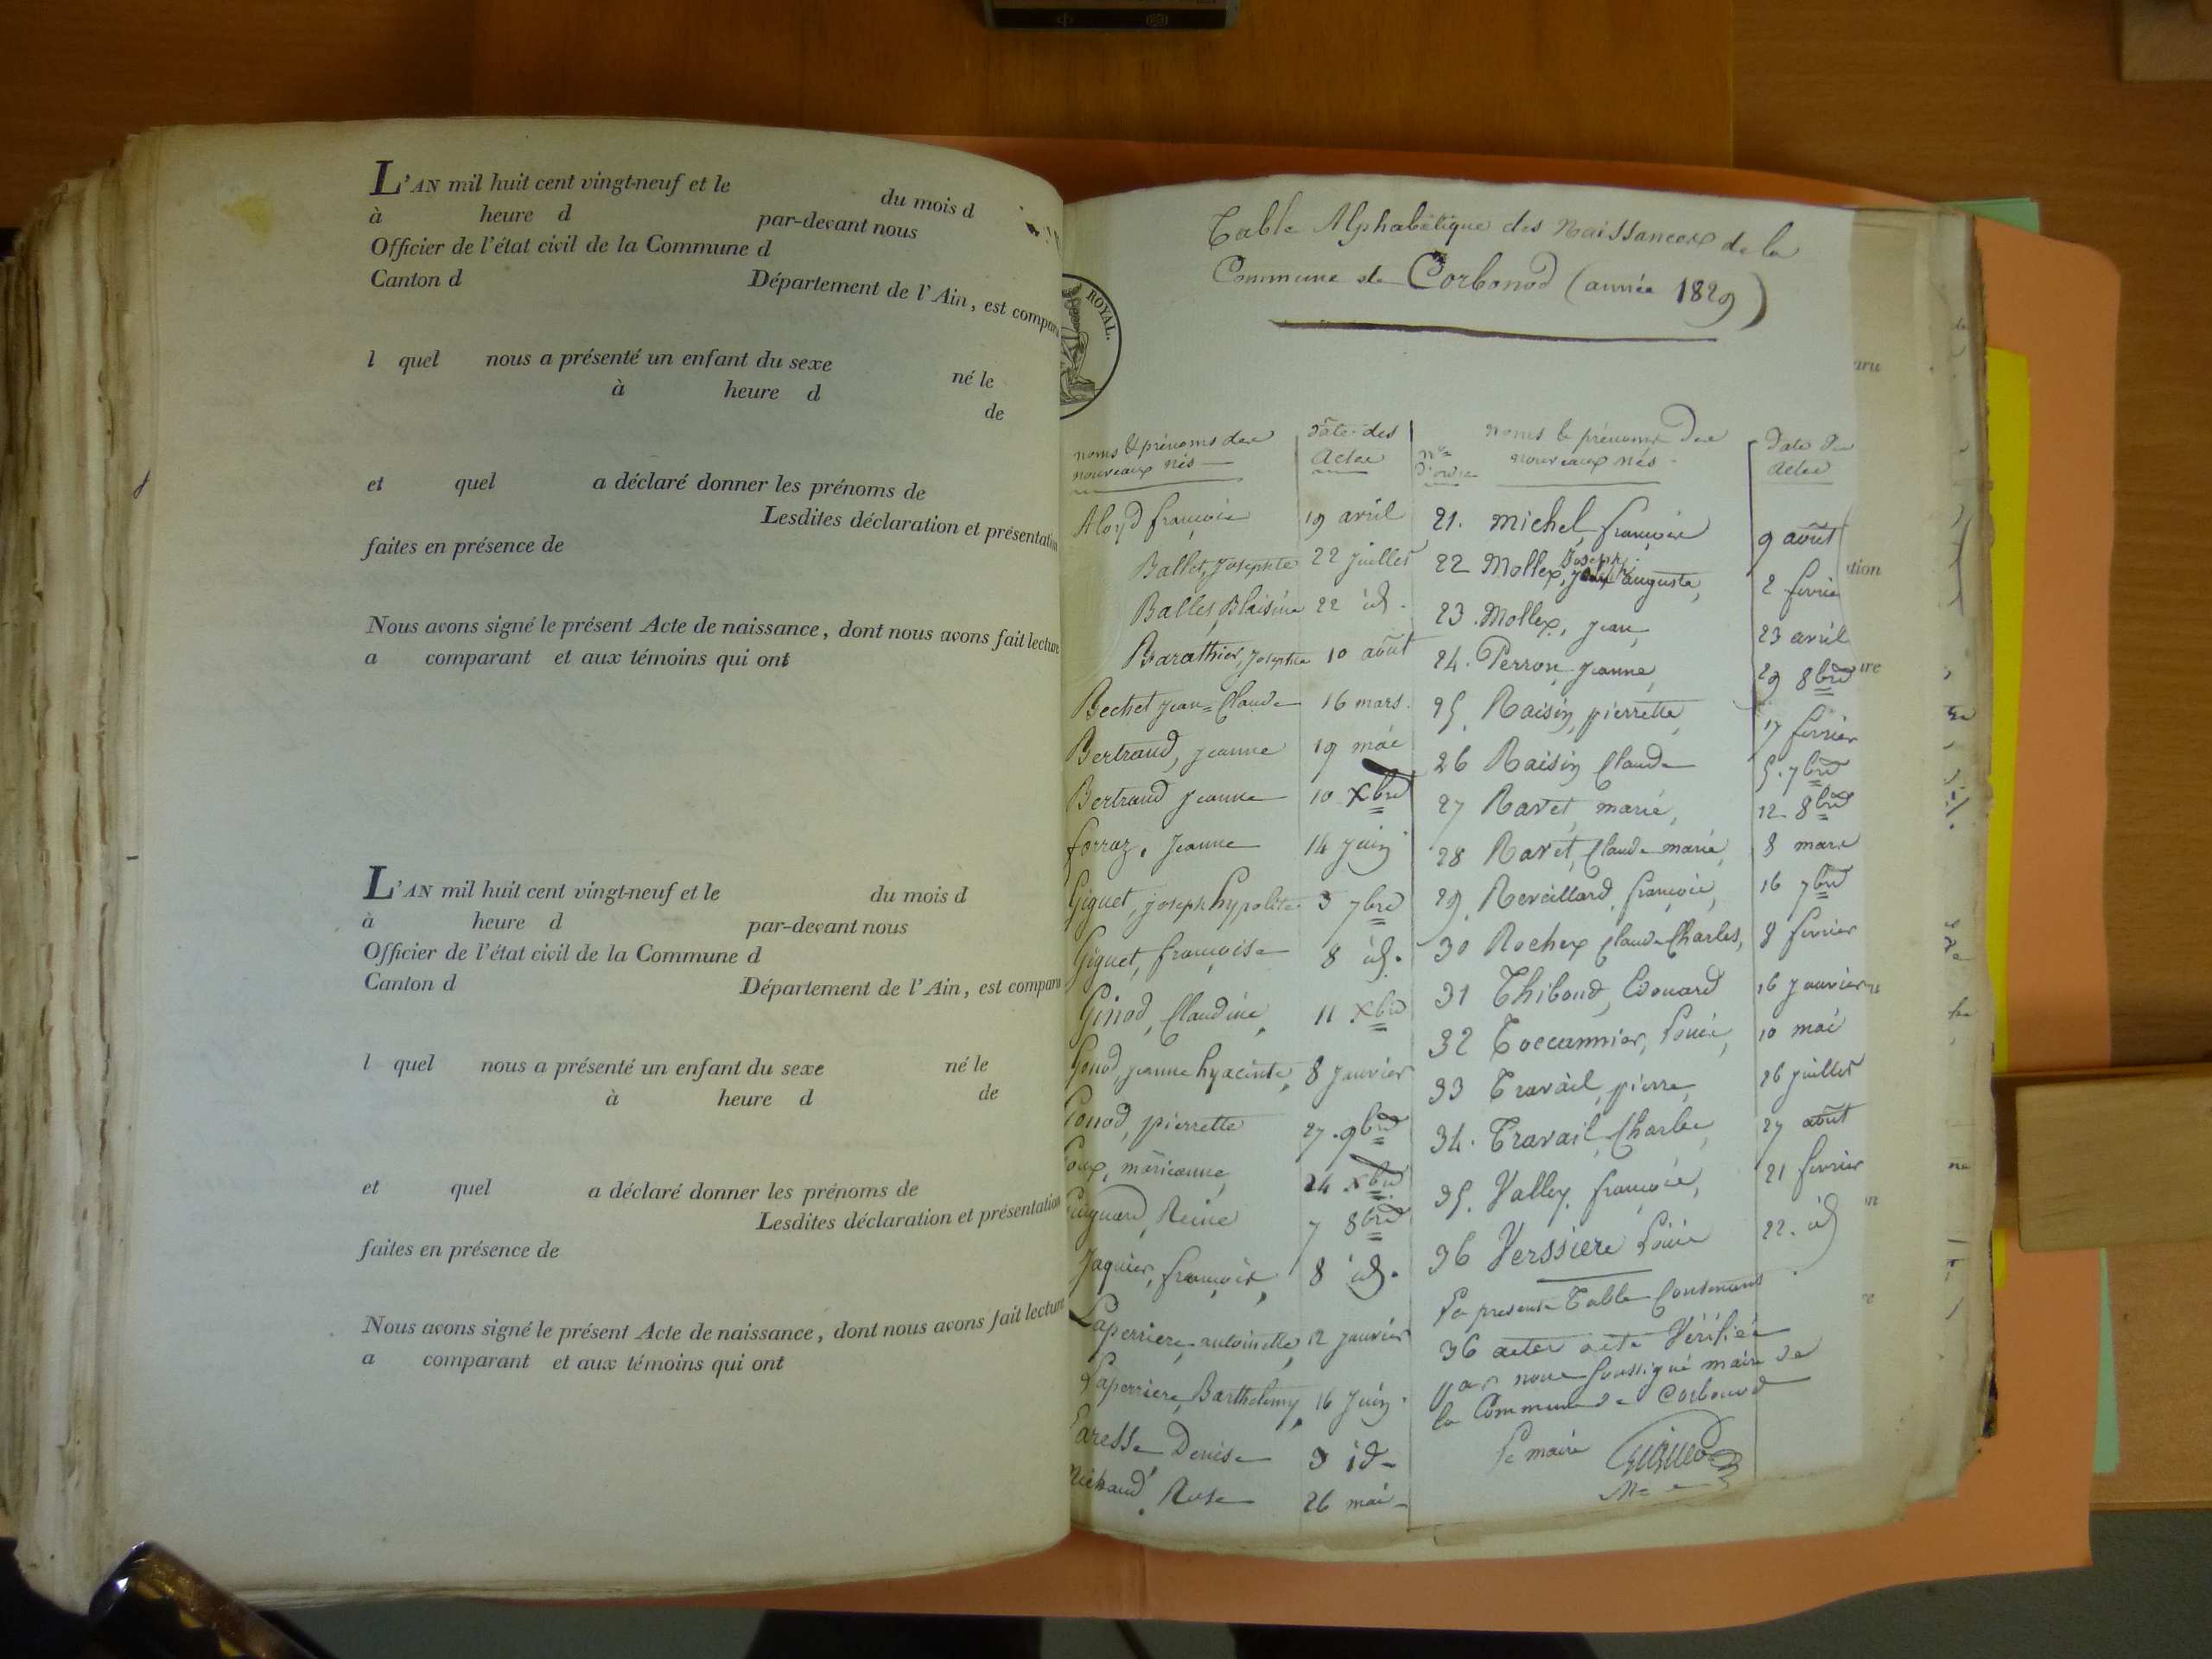 L'AN mil huit cent vingt-neuf et le du mois d
à heure d par-devant nous
Officier de l'état civil de la Commune d
Canton d Département de l'Ain, est compar
l quel nous a présenté un enfant du sexe né le
à heure d de
et quel a déclaré donner les prénoms de
Lesdites déclaration et présentation
faites en présence de
Nous avons signé le présent Acte de naissance, dont nous avons fait lecture
a comparant et aux témoins qui ont
L'AN mil huit cent vingt-neuf et le du mois d
à heure d par-devant nous
Officier de l'état civil de la Commune d
Canton d Département de l'Ain, est comparu
l quel nous a présenté un enfant du sexe né le
à heure d de
et quel a déclaré donner les prénoms de
Lesdites déclaration et présentation
faites en présence de
Nous avons signé le présent Acte de naissance, dont nous avons fait lecture
a comparant et aux témoins qui ont
ROYAL.
Table Alphabétique des Naissances de la
Commune de Corbonod (année 1829)
noms & prénoms des
nouveaux nés
date des
actes
Aloyd françois 19 avril
Ballet, Josephte 22 juillet
Ballet, Blaisine 22 id.
Barathier, Josephte 10 août
Bechet jean=Claude 16 mars.
Bertrand, jeanne 19 mai
Bertrand jeanne 10 Xbre
forraz, Jeanne 14 juin
Giguet, joseph hypolite 3 7bre
Giguet, françoise 8 id.
Ginod, Claudine, 11 Xbre
Gonod, jeanne hyacinte, 8 janvier
Gonod, pierrette 27. 9bre
marianne, 24 Xbre
Reine 7 8bre
Jaquier, françois, 8 id.
Laperriere, antoinette, 12 janvier
Laperriere, Barthelemy, 16 juin.
Denise 3 id
Michaud, Rose 26 mai
nos
d'ordre
noms & prénoms des
nouveaux nés
date des
actes
21. michel, françois 9 août
22 Mollex, Joseph auguste, 2 févrie
23. Mollex, jean, 23 avril
24. Perron, jeanne, 29 8bre
25. Raisin, pierrette, 17 février
26 Raisin Claude 5. 7bre
27 Ravet, marie, 12 8bre
28 Ravet, Claude marie, 8 mars
29. Reveillard, françois, 16 7bre
30 Rochex Claude Charles, 8 février
31 Thiboud, Edouard 16 janvier
32 Toccannier, Louis, 10 mai
33 Travail, pierre, 26 juillet
34. Travail, Charles, 27 août
35. Vallex, françois, 21 février
36 Verssiere Louis 22. id
La presente Table Contenant
36 actes a été Vérifiée
par nous soussigné maire de
la Commune de Corbonod
Le maire